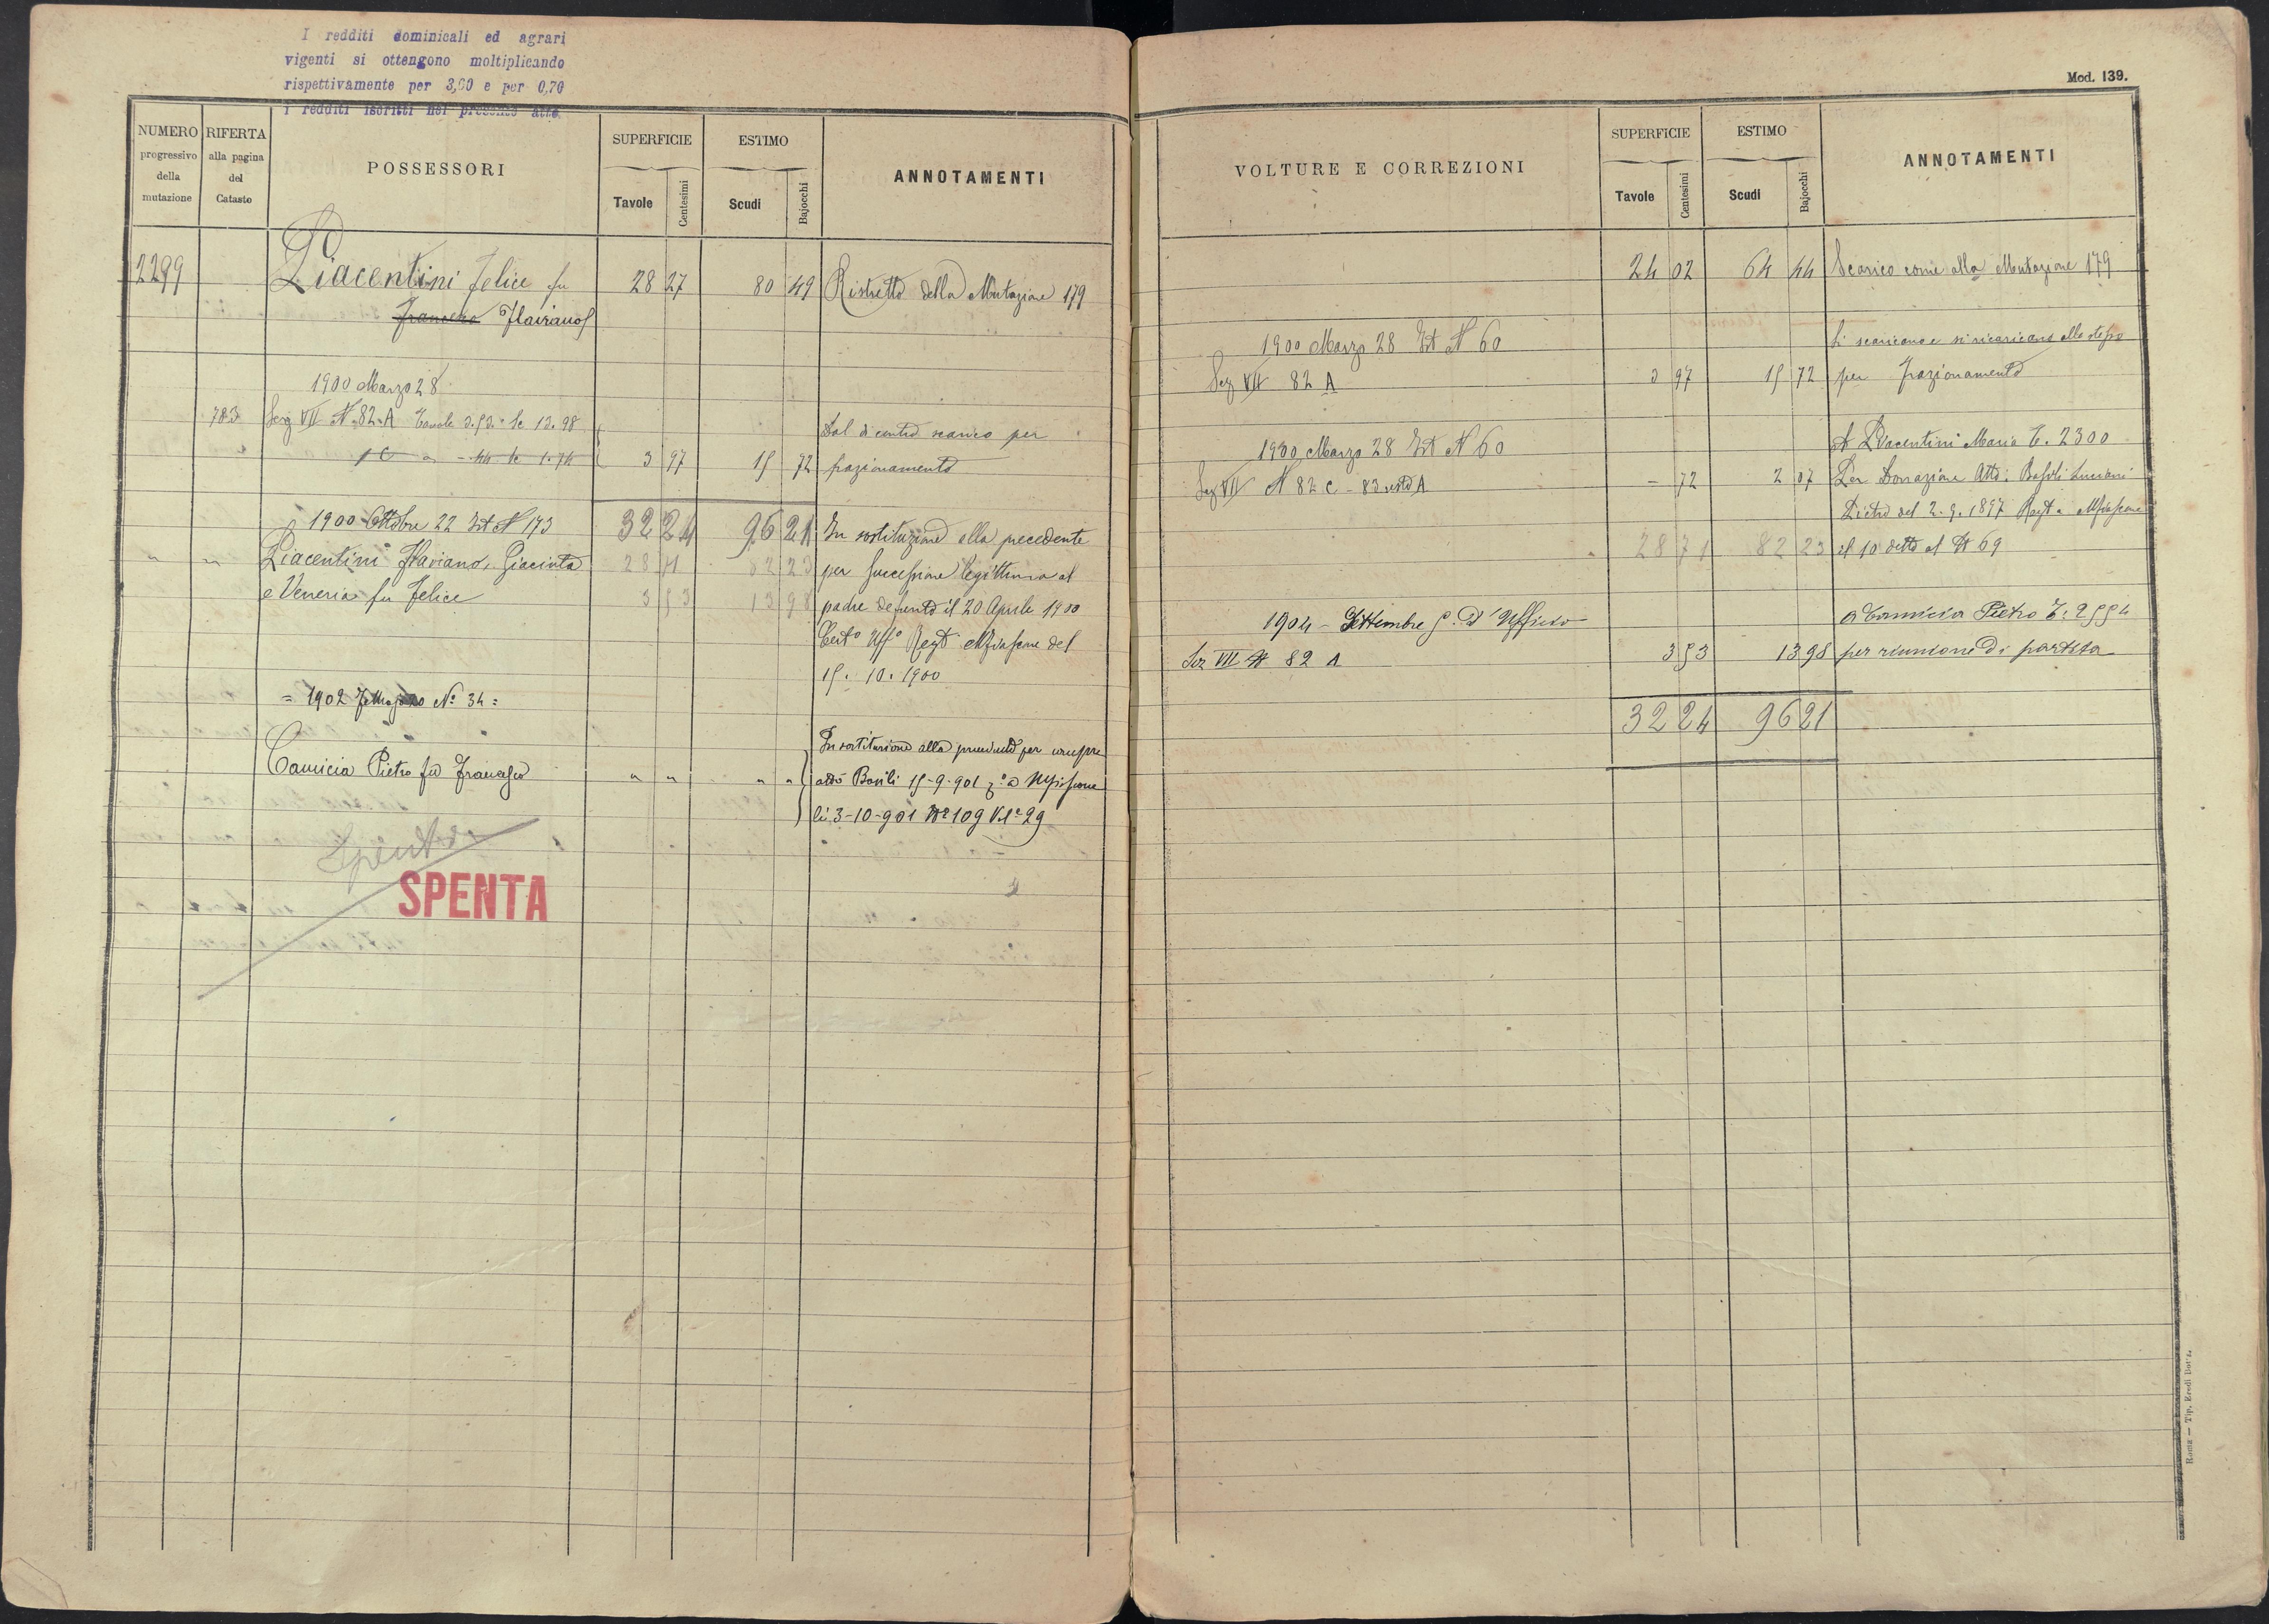 I redditi dominicali ed agrari
vigenti si ottengono moltiplicando
rispettivamente per 3,60 e per 0,70
i redditi iscritti nel presente atto.
NUMERO progressivo della mutazione
RIFERTA alla pagina del Catasto
POSSESSORI
SUPERFICIE
Tavole Centesimi
ESTIMO
Scudi Bajocchi
ANNOTAMENTI
2299 Piacentini Felice fu 28 27 80 49 Ristretto della Mutazione 179
Francesco Flaviano
1900 Marzo 28
783 Sez VII N. 82. A Tavole 3.53 Sc 13.98 Dal dicontro scarico per
1 C - 44 Sc 1.74 3 97 15 72 frazionamento
1900 Ottobre 22 Int N 173 32 24 96 21 In sostituzione alla precedente
" " Piacentini Flaviano, Giacinta 28 71 82 23 per successione legittima al
e Veneria fu Felice 3 53 13 98 padre defunto il 20 Aprile 1900
Certo Uffo Regto Mfiascone del
15. 10. 1900
= 1902 N° 34 =
Camicia Pietro fu Francesco " " " " In sostituzione alla precedente per
atto Basili 15-9-901 a Mfiascone
li 3-10-901 N° 109 Vol° 29
Spenta
SPENTA
Mod. 139.
VOLTURE E CORREZIONI
SUPERFICIE
Tavole Centesimi
ESTIMO
Scudi Bajocchi
ANNOTAMENTI
24 02 64 44 Scarico come alla Mutazione 179
1900 Marzo 28 Int N 60 Si scaricano e si ricaricano allo stesso
Sez VII 82 A 3 97 15 72 per frazionamento
1900 Marzo 28 Int N 60 A Piacentini Maria T. 2300
Sez VII N 82 C - 83 resto A - 72 2 07 Per Donazione Atto: Luciani
Pietro del 2. 9. 1897 Regt a Mfiascone
28 71 82 23 il 10 detto al N 69
1904 - Settembre 5. D'Ufficio a Camicia Pietro T: 2554
Sez VII N 82 A 3 53 13 98 per riunione di partita
32 24 96 21
Roma — Tip. Eredi Botta.